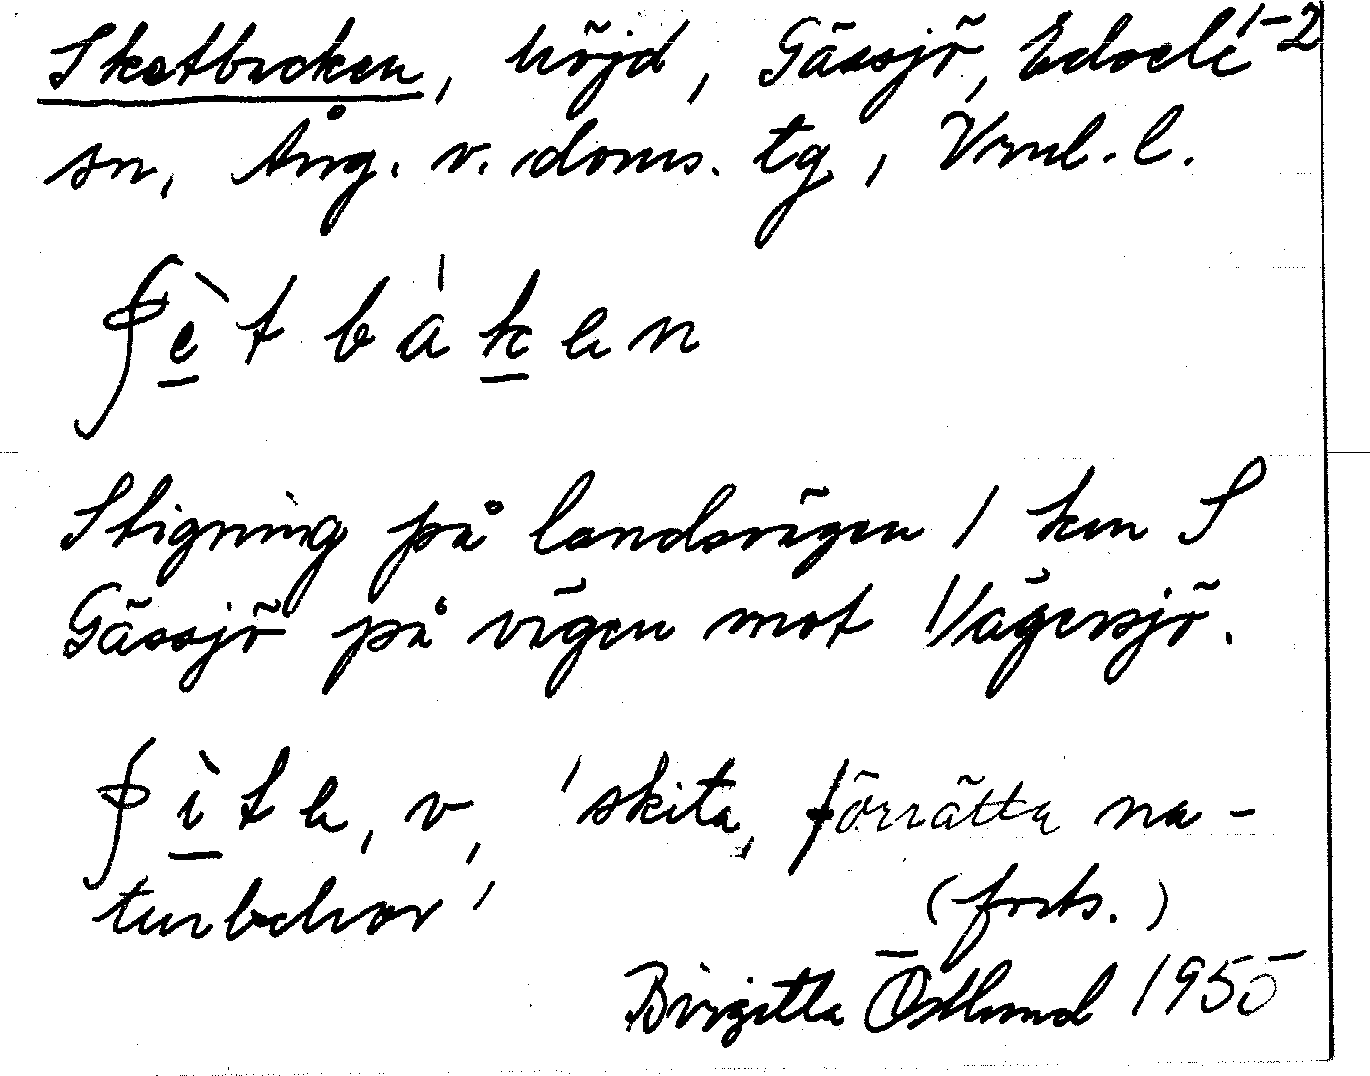 1-2
Sketbacken, höjd, Gässjö, Edsele
sn, Ång. v. doms. tg, Vrnl. l.
ʃè̠t bàk̠en
Stigning på landsvägen 1 km S
Gässjö på vägen mot Vägersjö.
ʃì̠te, v, 'skita, förrätta na-
turbehov'
(forts.)
Birgitta Östlund 1955